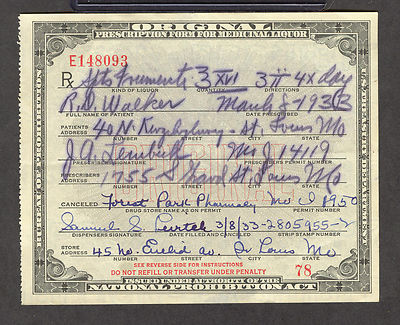 ORIGINAL
PRESCRIPTION FORM FOR MEDICINAL LIQUOR
E148093
Rx Spts Frumenti ℥ XVI ʒ ii 4x day
KIND OF LIQUOR QUANTITY DIRECTIONS
R.D. Walker March 8 1933
FULL NAME OF PATIENT DATE
PATIENTS ADDRESS 40 N. Kingshighway - St. Louis Mo
NUMBER STREET CITY STATE
J.A. Mo J 14119
PRESCRIBERS ADDRESS 1755 S Grand St. Louis Mo
NUMBER STREET CITY STATE
CANCELED Forest Park Pharmacy Mo 1950
DRUG STORE NAME AS ON PERMIT PERMIT NUMBER
Samuel S. 3/8/33-2805955-
DISPENSERS SIGNATURE DATE FILLED AND CANCELED STRIP STAMP NUMBER
STORE ADDRESS 45 No. Euclid av. St Louis Mo
NUMBER STREET CITY STATE
SEE REVERSE SIDE FOR INSTRUCTIONS
DO NOT REFILL OR TRANSFER UNDER PENALTY
78
ISSUED UNDER AUTHORITY OF THE
NATIONAL PROHIBITION ACT
BUREAU OF PROHIBITION